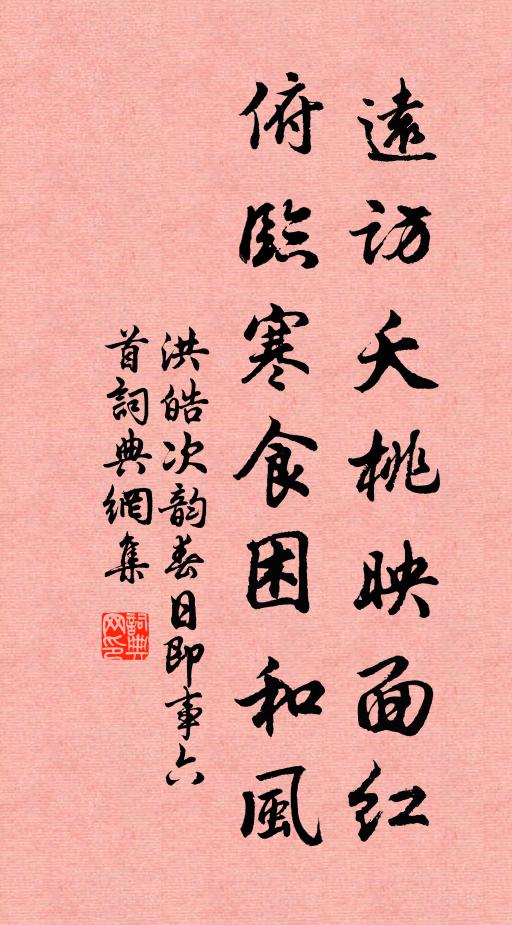 遠訪夭桃映面紅
俯臨寒食困和風
洪皓次韵春日即事六
首詞典網集
詞典
网印